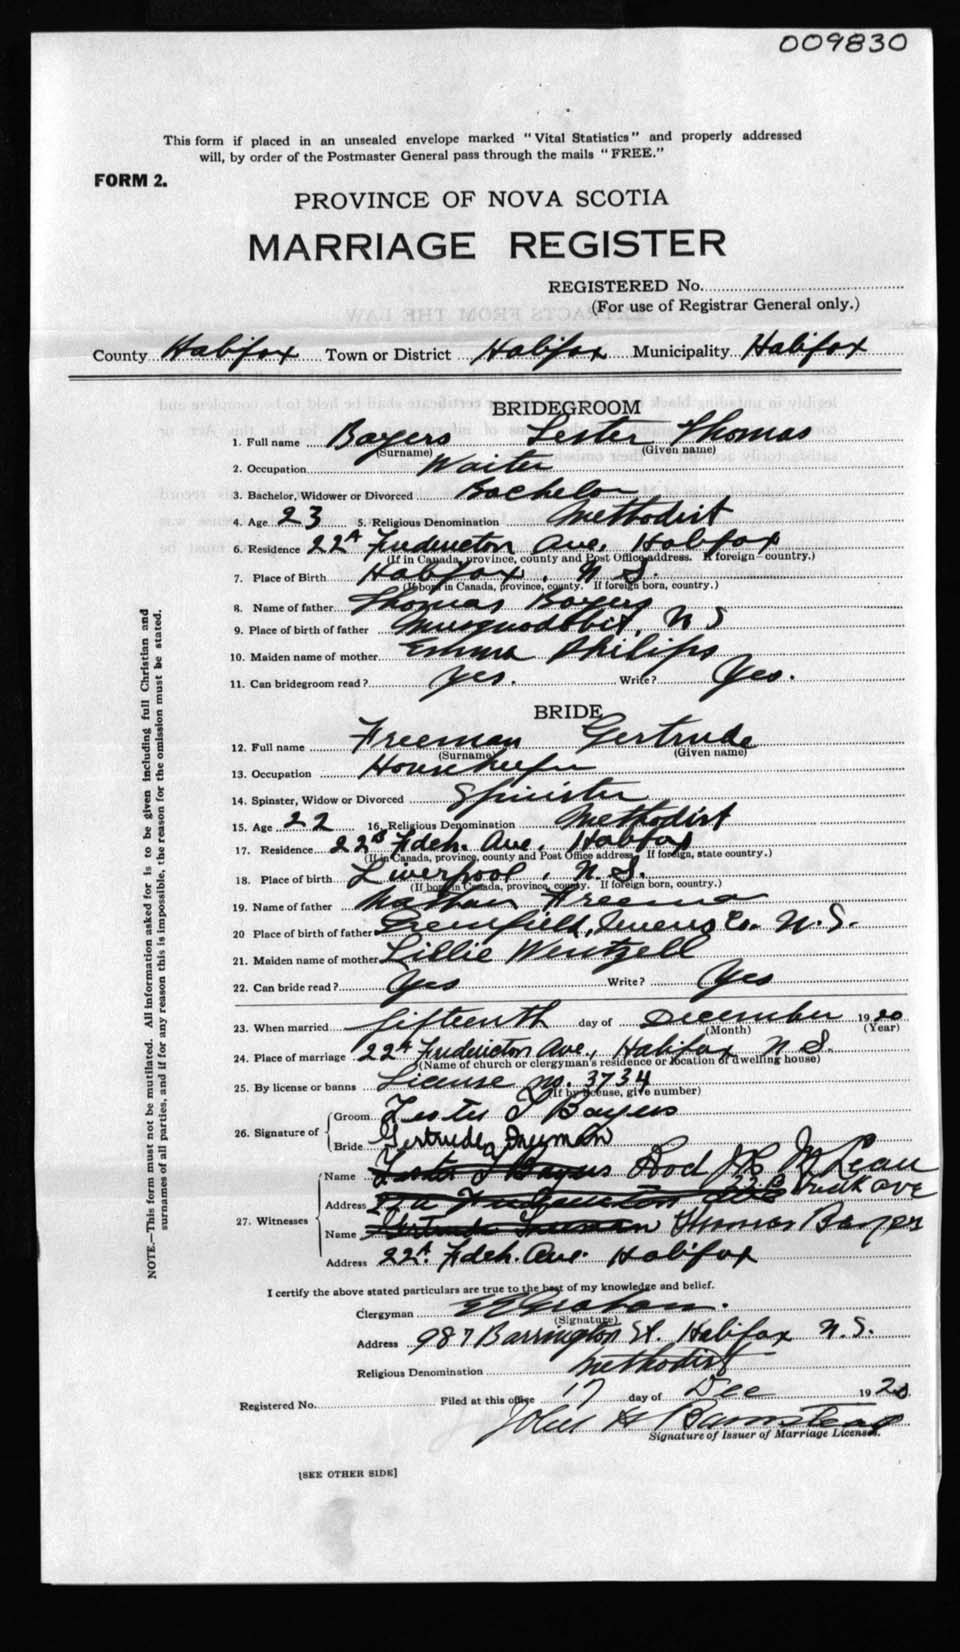 009830
This form if placed in an unsealed envelope marked "Vital Statistics" and properly addressed
will, by order of the Postmaster General pass through the mails "FREE."
FORM 2.
PROVINCE OF NOVA SCOTIA
MARRIAGE REGISTER
REGISTERED No.
(For use of Registrar General only.)
County Halifax Town or District Halifax Municipality Halifax
BRIDEGROOM
1. Full name Bayers Lester Thomas
(Surname) (Given name)
2. Occupation Waiter
3. Bachelor, Widower or Divorced Bachelor
4. Age 23 5. Religious Denomination Methodist
6. Residence 22A Fredericton Ave, Halifax
(If in Canada, province, county and Post Office address. If foreign—country.)
7. Place of Birth Halifax, N.S.
(If born in Canada, province, county. If foreign born, country.)
8. Name of father Thomas Bayers
9. Place of birth of father Musquodobit, N S
10. Maiden name of mother Emma Philips
11. Can bridegroom read? yes. Write? Yes.
BRIDE
12. Full name Freeman Gertrude
(Surname) (Given name)
13. Occupation Housekeeper
14. Spinster, Widow or Divorced Spinister
15. Age 22 16. Religious Denomination Methodist
17. Residence 22B Fdch. Ave, Halifax
(If in Canada, province, county and Post Office address. If foreign, state country.)
18. Place of birth Liverpool, N.S.
(If born in Canada, province, county. If foreign born, country.)
19. Name of father Nathan Freeman
20 Place of birth of father Greenfield, Queens Co. N.S.
21. Maiden name of mother Lillie Wentzell
22. Can bride read? Yes Write? Yes
23. When married fifteenth day of December 1920
(Month) (Year)
24. Place of marriage 22A Fredericton Ave., Halifax N.S.
(Name of church or clergyman's residence or location of dwelling house)
25. By license or banns License no. 3734
(If by license, give number)
26. Signature of Groom Lester T Bayers
Bride Gertrude Freeman
27. Witnesses Name Lester T Bayers Rod McLean
Address 22 B Fredk ave
Name Gertrude Freeman Thomas Bayers
Address 22A. Fdch. Ave. Halifax
I certify the above stated particulars are true to the best of my knowledge and belief.
Clergyman Graham.
(Signature)
Address 987 Barrington St. Halifax N.S.
Religious Denomination Methodist
Registered No. Filed at this office 17 day of Dec 1920.
John H Barnstead
Signature of Issuer of Marriage Licenses.
[SEE OTHER SIDE]
NOTE.—This form must not be mutilated. All information asked for is to be given including full Christian and
surnames of all parties, and if for any reason this is impossible, the reason for the omission must be stated.